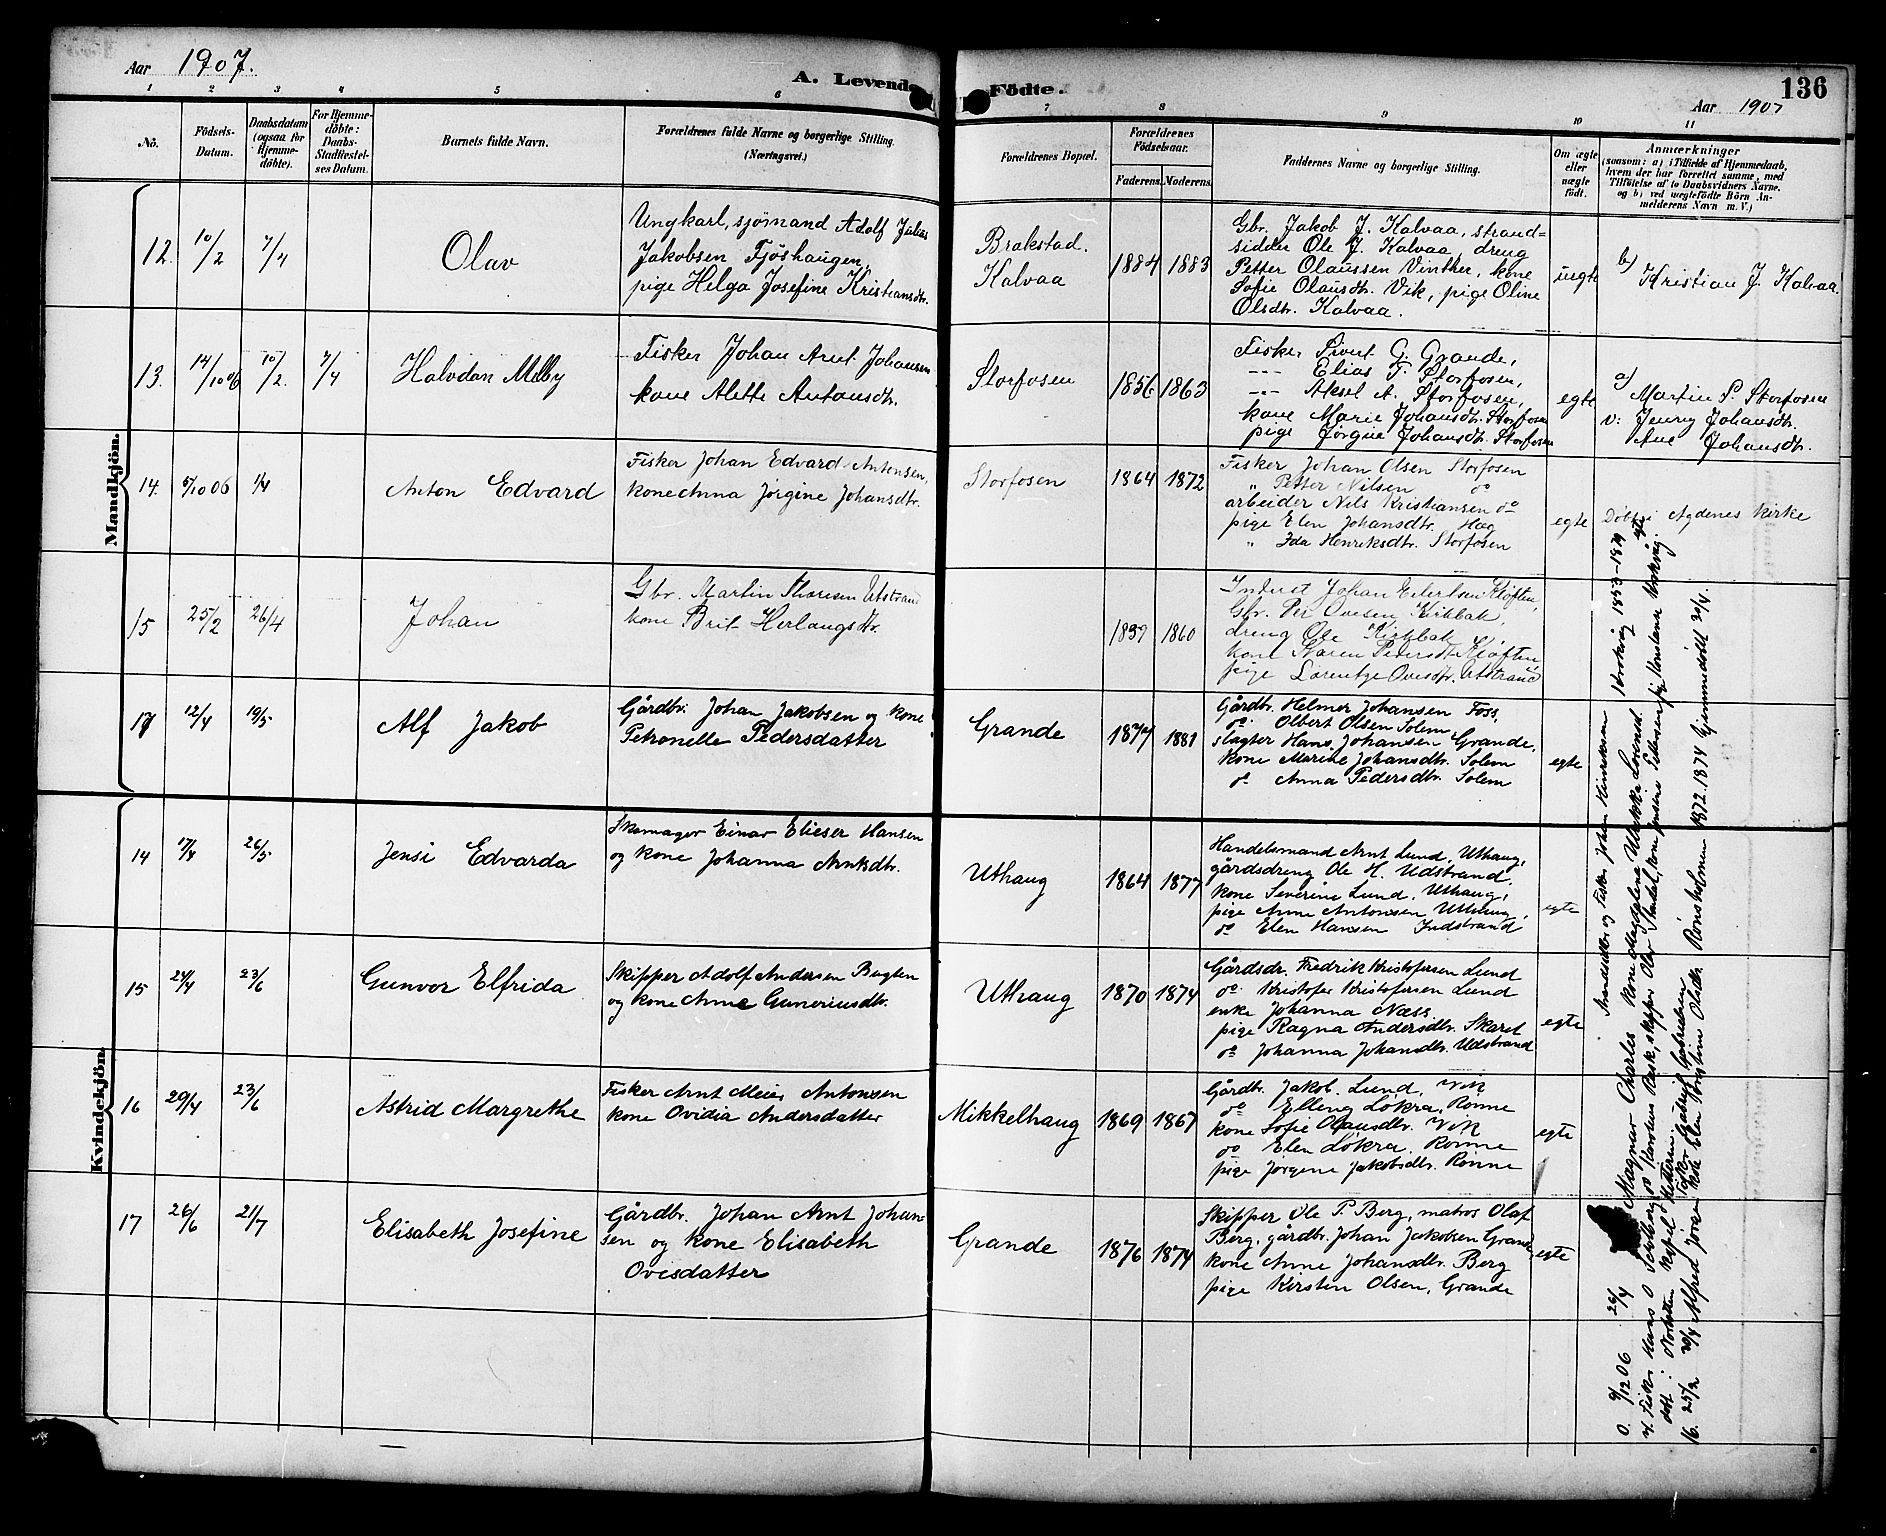 Aar 1907.
A. Levende Födte.
136
Aar 1907
1 2 3 4 5 6 7 8 9 10 11
No.
Födsels-Datum.
Daabsdatum (ogsaa for Hjemme-döbte).
For Hjemme-döbte: Daabs-Stadfæstel-ses Datum.
Barnets fulde Navn.
Forældrenes fulde Navne og borgerlige Stilling. (Næringsvei.)
Forældrenes Bopæl.
Forældrenes Födselsaar.
Faderens. Moderens.
Faddernes Navne og borgerlige Stilling.
Om ægte eller uægte födt.
Anmærkninger
(saasom: a) i Tilfælde af Hjemmedaab, hvem der har forrettet samme, med Tilföielse af to Daabsvidners Navne, og b) ved uægtefödte Börn An-melderens Navn m. V.)
Mandkjön.
12. 10/2 7/4 Olav
Ungkarl, sjömand Adolf Julius
Jakobsen Fjöshaugen,
pige Helga Josefine Kristiansdtr.
Brakstad.
Kalvaa
1884 1883
Gbr. Jakob J. Kalvaa, strand-
sidder Ole J. Kalvaa, dreng
Petter Olaussen Vinther, kone
Sofie Olausdtr. Vik, pige Oline
Olsdtr. Kalvaa.
uegte
b) Kristian J. Kalvaa.
13. 14/10 06 10/2. 7/4 Halvdan Melby
Fisker Johan Arnt Johansen
kone Alette Antonsdtr.
Storfosen
1856 1863
Fisker Sivert G. Grande,
--- Elias T. Storfosen,
--- Aksel A. Storfosen,
kone Marie Johansdtr. Storfosen
pige Jørgine Johansdtr. Storfosen
egte
a) Martin P. Storfosen
v: Jenny Johansdtr.
Ane Johansdtr.
14. 5/10 06 1/4 Anton Edvard
Fisker Johan Edvard Antonsen,
kone Anna Jørgine Johansdtr.
Storfosen
1864 1872
Fisker Johan Olsen Storfosen
" Petter Nilsen do
arbeider Nils Kristiansen do
pige Elen Johansdtr. Hag
" Ida Henriksdtr. Storfosen
egte
Döbt i Agdenes kirke
15 25/2 26/4 Johan
Gbr. Martin Thoresen Utstrand
kone Brit Herlaugsdtr.
1859 1860
Inderst Johan Eilertsen Kløften,
Gbr. Per Ovesen Kirkbak,
dreng Ole Kirkbak,
kone Karen Pedersdtr Kløften
pige Lorentze Ovesdtr. Utstrand
17 12/4 19/5 Alf Jakob
Gårdbr. Johan Jakobsen og kone
Petronelle Pedersdatter
Grande
1877 1881
Gårdbr. Helmer Johansen Foss,
do. Olbert Olsen Solem
slagter Hans Johansen Grande,
kone Marine Johansdtr. Solem
do Anna Pedersdtr. Solem
egte
Kvindekjön.
14 17/4 26/5 Jensi Edvarda
Skomager Einar Elieser Hansen
og kone Johanna Arntsdtr.
Uthaug
1864 1877
Handelsmand Arnt Lund, Uthaug,
gårdsdreng Ole H. Udstrand,
kone Severine Lund, Uthaug,
pige Anne Antonsen Uthaug,
do Elen Hansen Indstrand
egte
15 24/4 23/6 Gunvor Elfrida
Skipper Adolf Andersen Bugten
og kone Anne Gunneriusdtr.
Uthaug
1870 1874
Gårdsdr. Fredrik Kristofersen Lund
do. Kristofer Kristofersen Lund
enke Johanna Næss
pige Ragna Andersdtr. Skaret
do Johanna Johansdtr. Udstrand
egte
16 29/4 23/6 Astrid Margrethe
Fisker Arnt Meier Antonsen
kone Ovidia Andersdatter
Mikkelhaug
1869 1867
Gårdbr. Jakob Lund, Vik
do Elling Løkra, Rønne
kone Sofie Olausdtr. Vik
do Elen Løkra. Rønne
pige Jørgine Jakobsdtr. Rønne
egte
17 26/6 21/7 Elisabeth Josefine
Gårdbr. Johan Arnt Johan-
sen og kone Elisabeth
Ovesdatter
Grande
1876 1874
Skipper Ole P. Berg, matros Olaf
Berg, gårdbr. Johan Jakobsen Grande,
kone Anne Johansdtr. Berg
pige Kirsten Olsen, Grande
egte
O. 9/12 06 26/4 Magnar Charles
Strandsidder og Fisker Johan Hinriksen
kone Magdalena Ulrikke Lorentsd.
1853-1874
16. 25/2 20/4 Alfred Johan
1872. 1874 Hjemmedöbt 20/4.